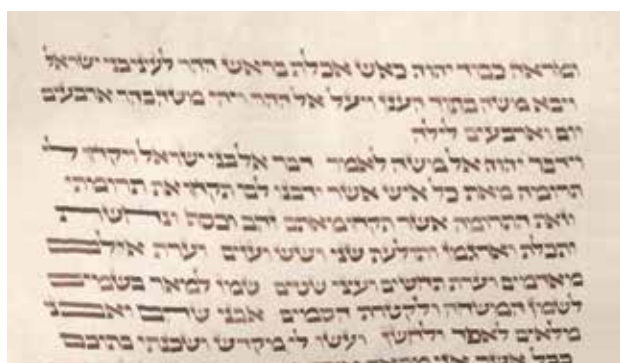 ומראה כבוד יהוה כאש אכלת בראש ההר לעיני בני ישראל
ויבא משה בתוך הענן ויעל אל ההר ויהי משה בהר ארבעים
יום וארבעים לילה
וידבר יהוה אל משה לאמר דבר אל בני ישראל ויקחו לי
תרומה מאת כל איש אשר ידבנו לבו תקחו את תרומתי
וזאת התרומה אשר תקחו מאתם זהב וכסף ונחשת
ותכלת וארגמן ותולעת שני ושש ועזים וערת אילם
מאדמים וערת תחשים ועצי שטים שמן למאר בשמים
לשמן המשחה ולקטרת הסמים אבני שהם ואבני
מלאים לאפד ולחשן ועשו לי מקדש ושכנתי בתוכם